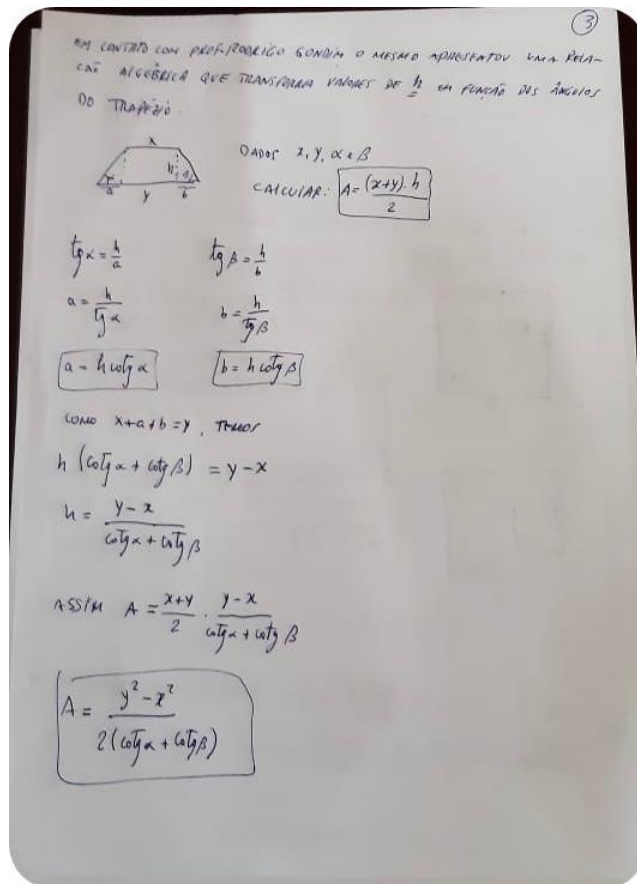 3
EM CONTATO COM PROF. RODRIGO GONDIM O MESMO APRESENTOU UMA RELA-
CÃO ALGÉBRICA QUE TRANSFORMA VALORES DE h EM FUNÇÃO DOS ÂNGULOS
DO TRAPÉZIO
x
DADOS x, y, α e β
h
α
a
y
b
CALCULAR: A = (x+y).h / 2
tg α = h/a tg β = h/b
a = h / tg α b = h / tg β
a = h cotg α b = h cotg β
COMO x+a+b = y, TEMOS
h (cotg α + cotg β) = y - x
h = y - x / cotg α + cotg β
ASSIM A = x+y / 2 . y - x / cotg α + cotg β
A = y² - x² / 2(cotg α + cotg β)